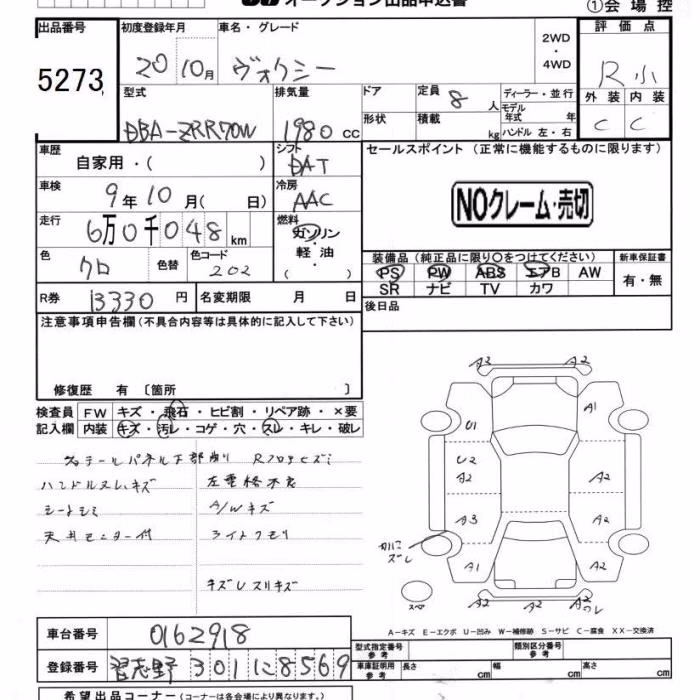 オークション出品申込書
①会場控
出品番号 初度登録年月 車名・グレード 2WD・4WD 評価点
5273 20 10月 ヴォクシー R小
型式 排気量 ドア 定員 8人 ディーラー・並行 外装 内装
DBA-ZRR70W 1980cc 形状 積載 kg モデル年式 年 C C
ハンドル 左・右
車歴 自家用・( ) シフト DAT セールスポイント (正常に機能するものに限ります)
車検 9年10月( 日) 冷房 AAC
NOクレーム・売切
走行 6万0千048km 燃料 ガソリン・軽油・( )
色 クロ 色替 色コード 202
装備品 (純正品に限り○をつけてください) 新車保証書
PS PW ABS エアB AW 有・無
SR ナビ TV カワ
R券 13330円 名変期限 月 日 後日品
注意事項申告欄(不具合内容等は具体的に記入して下さい)
修復歴 有 〔箇所 〕
検査員記入欄 FW キズ・飛石・ヒビ割・リペア跡・×要
内装 キズ・汚レ・コゲ・穴・スレ・キレ・破レ
ハンドルスレキズ
シートシミ A/Wキズ
天井モニター付 ライトクモリ
キズUスリキズ
A2 A2
A1
U1
U2
A2 A2
A3 A2
ズレ
A1 A2
スペア A2 A2
A-キズ E-エクボ U-凹み W-補修跡 S-サビ C-腐食 XX-交換済
車台番号 0162918 型式指定番号 参考 類別区分番号 参考
登録番号 習志野 301 に 8569 車庫証明用 参考 長さ cm 幅 cm 高さ cm
希望出品コーナー(コーナーは各会場により異なります。)